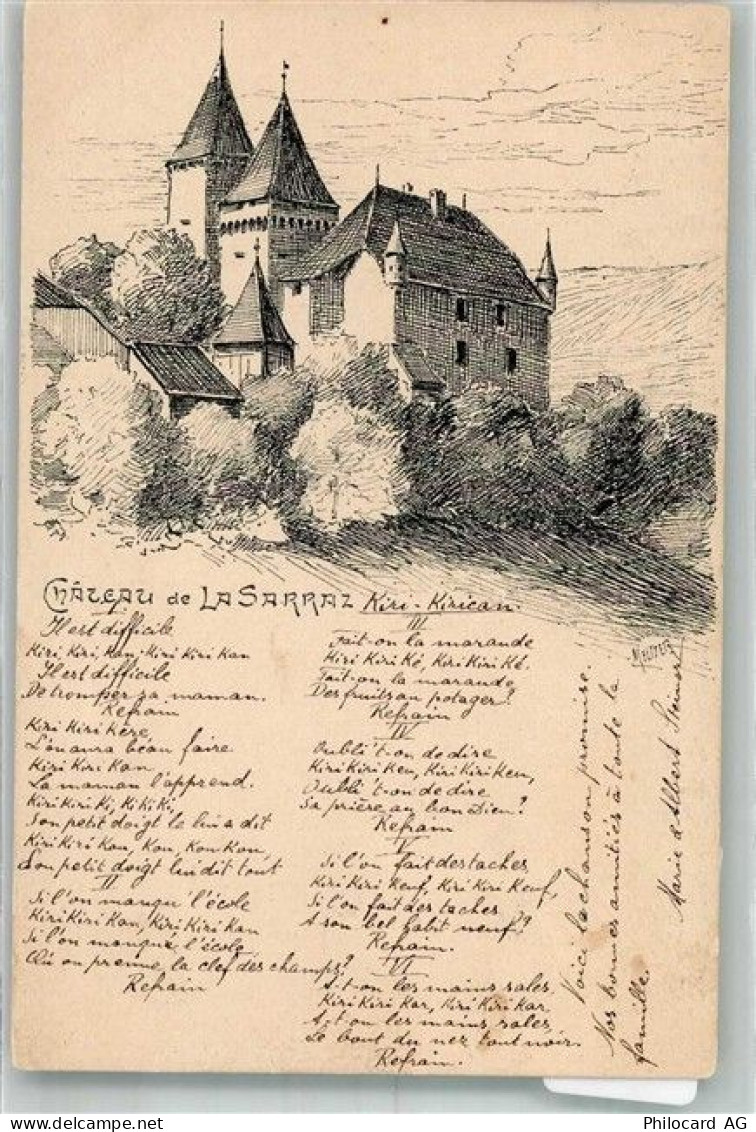 Château de La Sarraz
Kiri-Kirican.
Il est difficile
Kiri Kiri, Kan, Kiri Kiri Kan
Il est difficile
De tromper sa maman.
Refrain
Kiri Kiri Kère,
L'on aura beau faire
Kiri Kiri Kan
La maman l'apprend.
Kiri Kiri Ki, Ki Ki Ki,
Son petit doigt le lui a dit
Kiri Kiri Kou, Kou, Kou Kou
Son petit doigt lui dit tout
II
Si l'on manqu' l'école
Kiri Kiri Kan, Kiri Kiri Kan
Si l'on manque l'école
Qu'on prenne la clef des champs?
Refrain
III
Fait-on la maraude
Kiri Kiri Ké, Kiri Kiri Ké.
Fait-on la maraude
Des fruits au potager?
Refrain
IV
Oubli't-on de dire
Kiri Kiri Keu, Kiri Kiri Keu,
Oubli't-on de dire
Sa prière au bon Dieu?
Refrain
V
Si l'on fait des taches
Kiri Kiri Keuf, Kiri Kiri Keuf,
Si l'on fait des taches
A son bel habit neuf?
Refrain.
VI
A-t-on les mains sales
Kiri Kiri Kar, Kiri Kiri Kar
A-t-on les mains sales,
Le bout du nez tout noir.
Refrain.
Voici la chanson promise.
Nos bonnes amitiés à toute la
famille.
Marie & Albert Steiner
Philocard AG